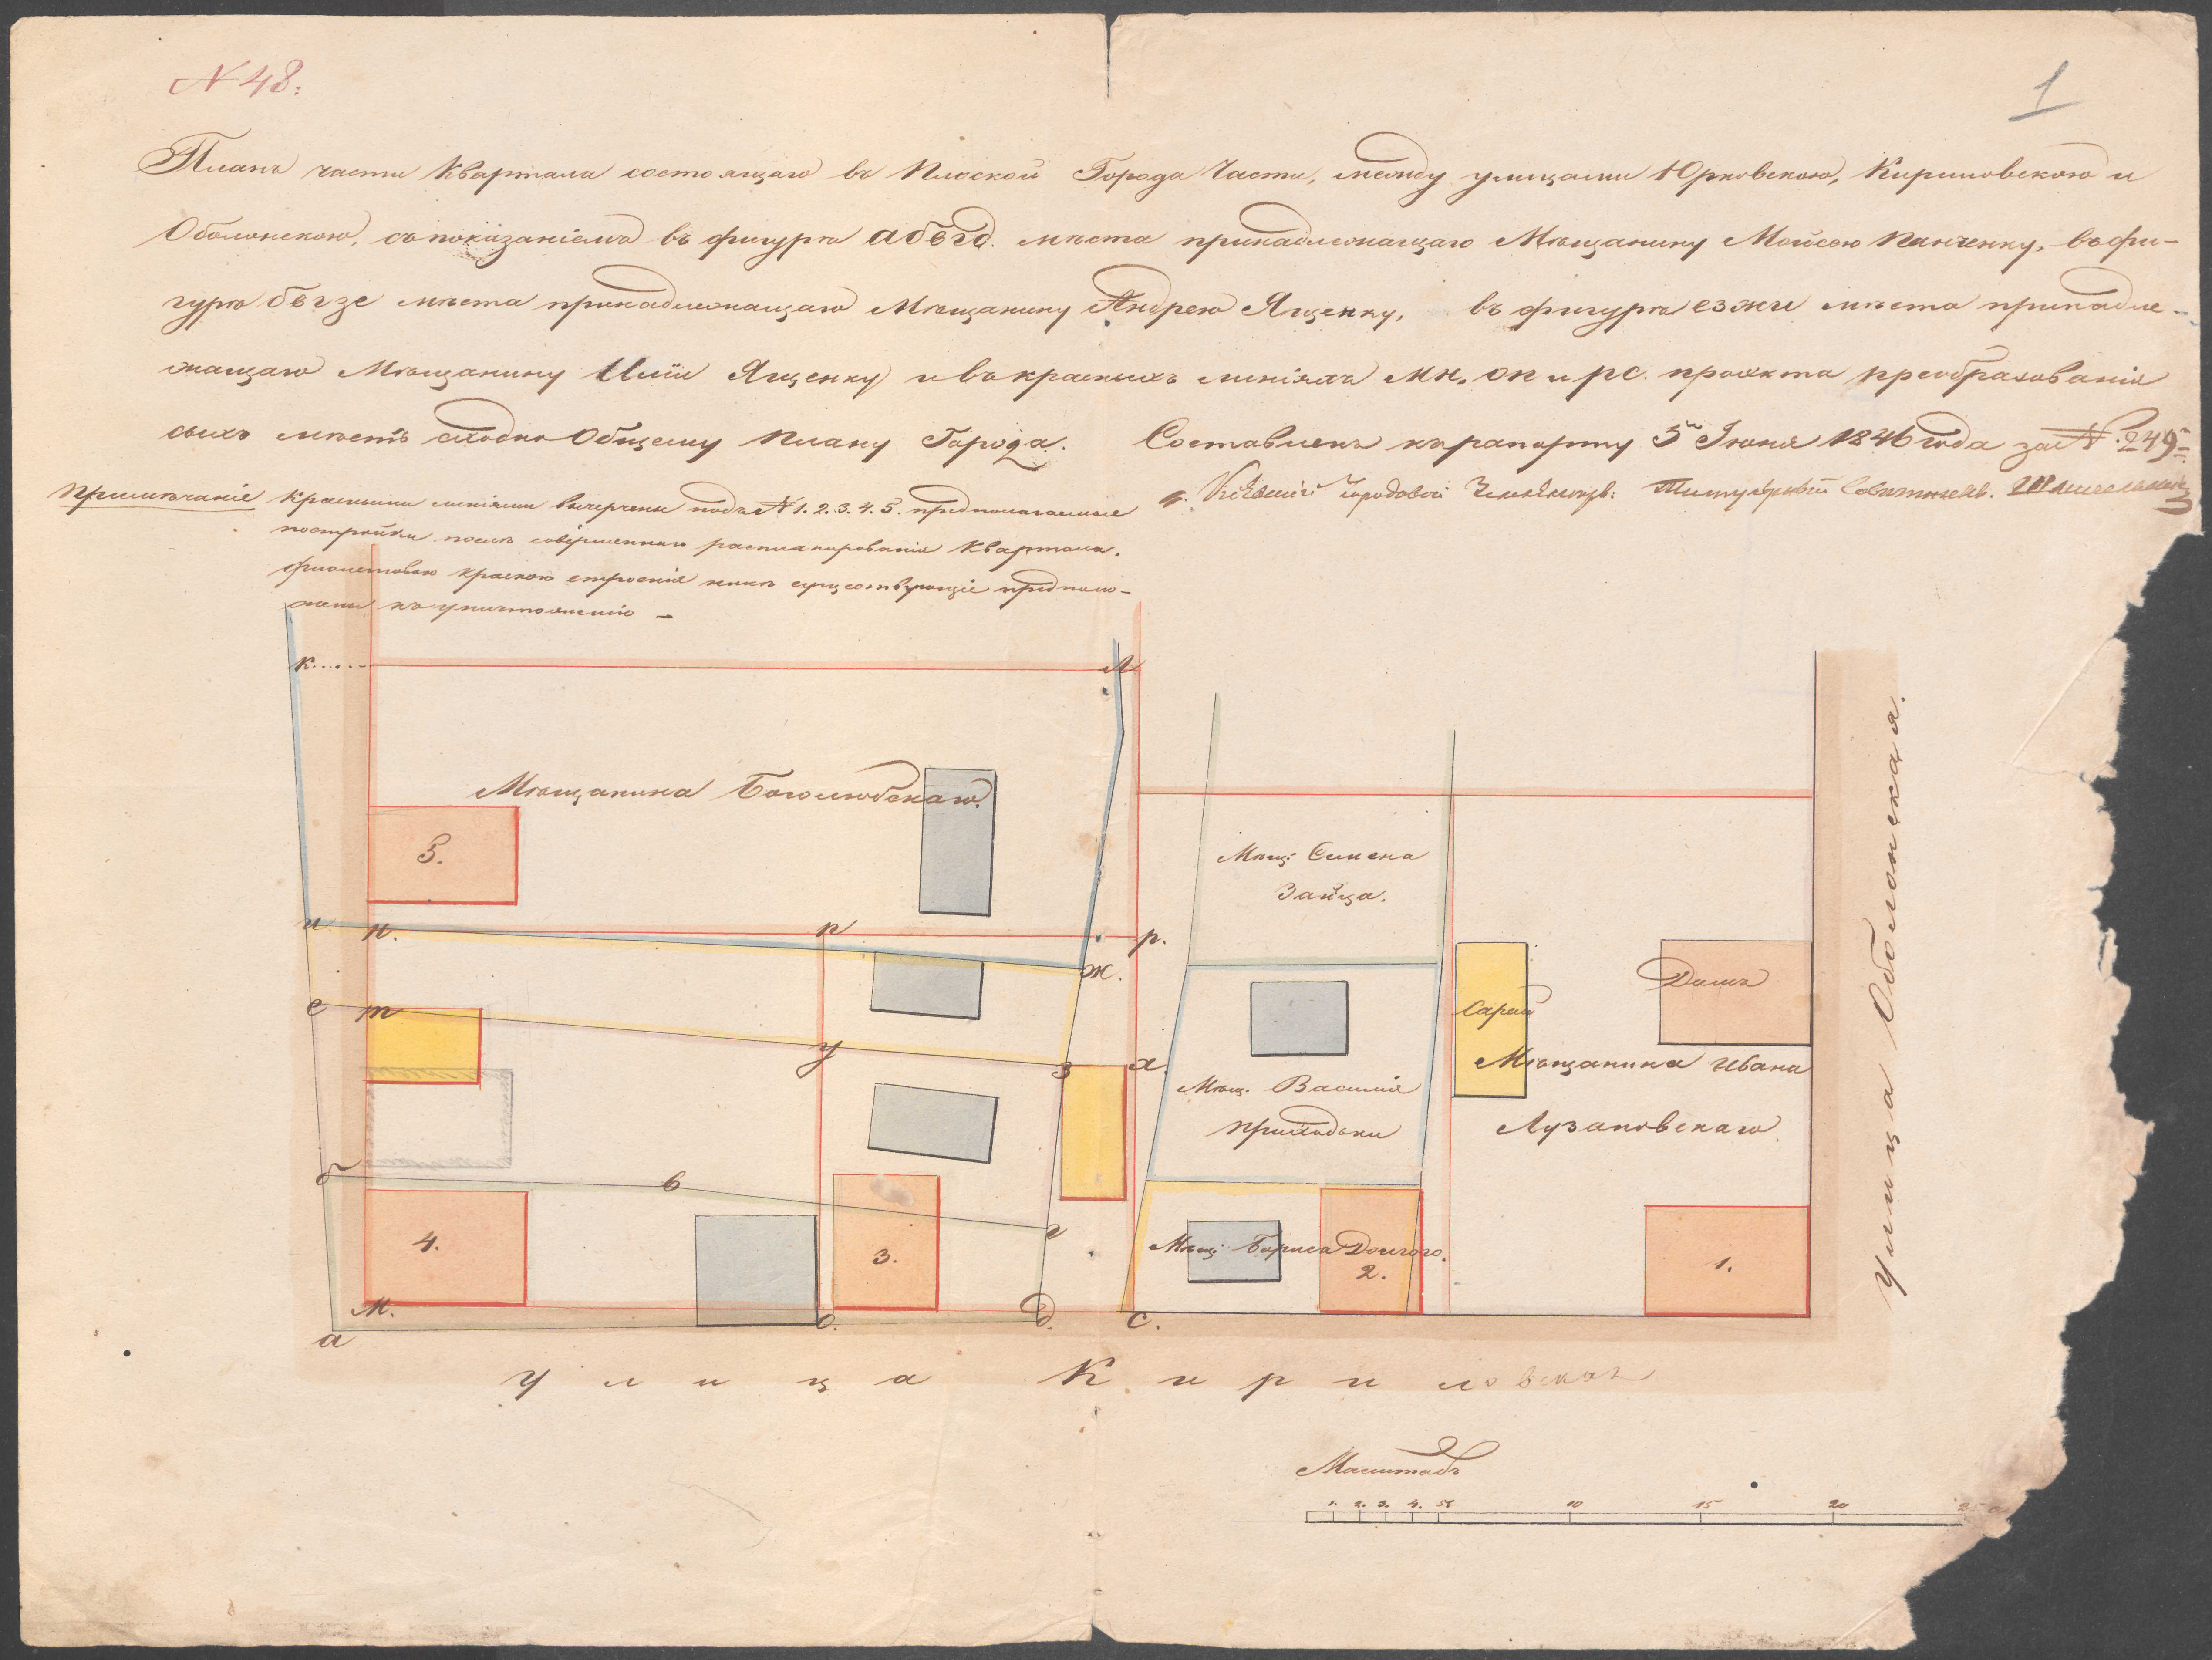 N 48.
1
Планъ части Квартала состоящаго въ Плоской Города Части, между улицами Юрковскою, Кириловскою и
Оболонскою, съ показаніемъ въ фигурѣ абвгд. мѣста принадлежащаго Мѣщанину Мойсею Панченку, въ фи-
гурѣ бвгзе мѣста принадлежащаго Мѣщанину Андрею Ященку, въ фигурѣ езжи мѣста принадле-
жащаго Мѣщанину Иліи Ященку и въ красныхъ линіяхъ мн. оп и рс. проэкта преобразованія
сихъ мѣстъ сходно Общему Плану Города. Составленъ къ рапорту 5го Іюня 1846 года за N. 249
Примѣчаніе Красными линіями вычерчены подъ N 1. 2. 3. 4. 5. предполагаемые
постройки послѣ совершеннаго распланированія Квартала.
фіолетовою краскою строенія нынѣ существующіе предполо-
жены къ уничтоженію —
Кіевскій городовой Землемѣръ Титулярный Совѣтникъ
к
л
Мѣщанина Боголюбскаго.
5.
и
н.
п
р.
ж.
е
т
у
з
х.
б
в
г
4.
3.
м.
а
о.
д.
с.
Мѣщ: Семена
Зайца.
Мѣщ. Василія
Приходьки
Мѣщ: Бориса Долгого.
2.
Сарай
Домъ
Мѣщанина Ивана
Лузановскаго
1.
Улица Оболонская.
Улица Кириловская
Масштабъ
1. 2. 3. 4. 5 10 15 20 25